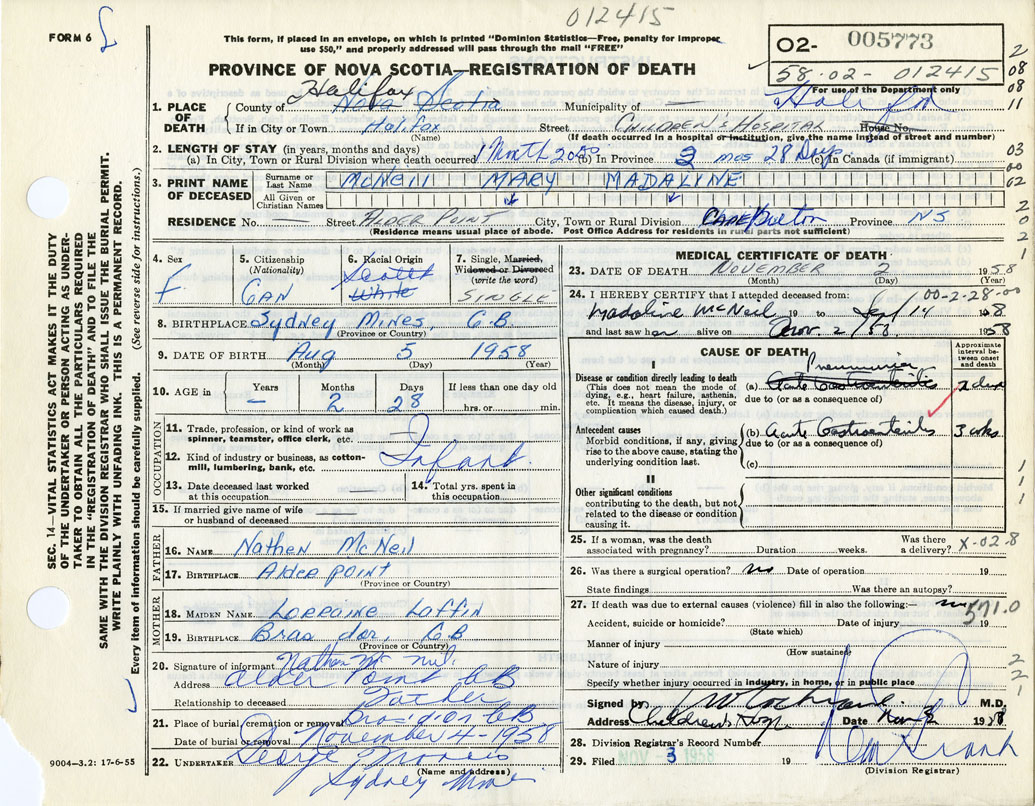 012415
FORM 6
This form, if placed in an envelope, on which is printed "Dominion Statistics—Free, penalty for improper
use $50," and properly addressed will pass through the mail "FREE"
O2- 005773
58.02- 012415
PROVINCE OF NOVA SCOTIA—REGISTRATION OF DEATH
For use of the Department only
2
08
08
11
03
00
02
2
0
2
2
1
1. PLACE OF DEATH
County of Halifax Nova Scotia Municipality of — Halifax
If in City or Town Halifax Street Children's Hospital House No.
(Name) (If death occurred in a hospital or institution, give the name instead of street and number)
2. LENGTH OF STAY (in years, months and days)
(a) In City, Town or Rural Division where death occurred 1 Month (b) In Province 2 mos 28 Days (c) In Canada (if immigrant)
3. PRINT NAME OF DECEASED
Surname or Last Name McNeil MARY MADALINE
All Given or Christian Names
RESIDENCE No. — Street Alder Point City, Town or Rural Division Cape Breton Province NS
(Residence means usual place of abode. Post Office Address for residents in rural parts not sufficient)
4. Sex F
5. Citizenship (Nationality) CAN
6. Racial Origin Scotch White
7. Single, Married, Widowed or Divorced (write the word) SINGLE
8. BIRTHPLACE Sydney Mines, C.B.
(Province or Country)
9. DATE OF BIRTH Aug 5 1958
(Month) (Day) (Year)
10. AGE in Years — Months 2 Days 28 If less than one day old
hrs. or min.
OCCUPATION
11. Trade, profession, or kind of work as
spinner, teamster, office clerk, etc.
12. Kind of industry or business, as cotton-
mill, lumbering, bank, etc.
Infant.
13. Date deceased last worked
at this occupation
14. Total yrs. spent in
this occupation
15. If married give name of wife
or husband of deceased —
FATHER
16. NAME Nathen McNeil
17. BIRTHPLACE Alder point
(Province or Country)
MOTHER
18. MAIDEN NAME Lorraine Laffin
19. BIRTHPLACE Bras dor, C.B
(Province or Country)
20. Signature of informant Nathen Mc Neil.
Address Alder Point CB
Relationship to deceased Father
21. Place of burial, cremation or removal CB
Date of burial or removal November 4-1958
22. UNDERTAKER George
(Name and address)
Sydney Mines
9004—3.2: 17-6-55
SEC. 14—VITAL STATISTICS ACT MAKES IT THE DUTY
OF THE UNDERTAKER OR PERSON ACTING AS UNDER-
TAKER TO OBTAIN ALL THE PARTICULARS REQUIRED
IN THE "REGISTRATION OF DEATH" AND TO FILE THE
SAME WITH THE DIVISION REGISTRAR WHO SHALL ISSUE THE BURIAL PERMIT.
WRITE PLAINLY WITH UNFADING INK. THIS IS A PERMANENT RECORD.
Every item of information should be carefully supplied. (See reverse side for instructions.)
MEDICAL CERTIFICATE OF DEATH
23. DATE OF DEATH November 2 1958
(Month) (Day) (Year)
24. I HEREBY CERTIFY that I attended deceased from: 00-2-28-00
Madaline McNeil 19 to Sept 14 1958
and last saw her alive on Nov 2/58 1958
CAUSE OF DEATH
Approximate
interval be-
tween onset
and death
I
Disease or condition directly leading to death
(This does not mean the mode of
dying, e.g., heart failure, asthenia,
etc. It means the disease, injury, or
complication which caused death.)
Pneumonia
(a) Acute Gastroenteritis
due to (or as a consequence of)
Antecedent causes
Morbid conditions, if any, giving
rise to the above cause, stating the
underlying condition last.
(b) Acute Gastroenteritis 3 wks
due to (or as a consequence of)
(c)
II
Other significant conditions
contributing to the death, but not
related to the disease or condition
causing it.
1
1
1
25. If a woman, was the death
associated with pregnancy? Duration weeks. Was there
a delivery? X-02-8
26. Was there a surgical operation? No Date of operation 19
State findings Was there an autopsy?
27. If death was due to external causes (violence) fill in also the following:— 571.0
Accident, suicide or homicide? Date of injury 19
(State which)
Manner of injury
(How sustained)
Nature of injury
Specify whether injury occurred in industry, in home, or in public place
2
2
1
Signed by M.D.
Address Children's Hosp. Date Nov 3 1958
28. Division Registrar's Record Number
29. Filed NOV 3 1958 19
(Division Registrar)